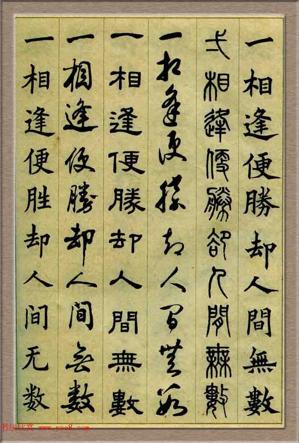 一相逢便勝却人間無數
弌相逢便勝卻人間無數
一相逢便勝却人間無數
一相逢便勝却人間無數
一相逢便勝却人間無数
一相逢便胜却人间无数